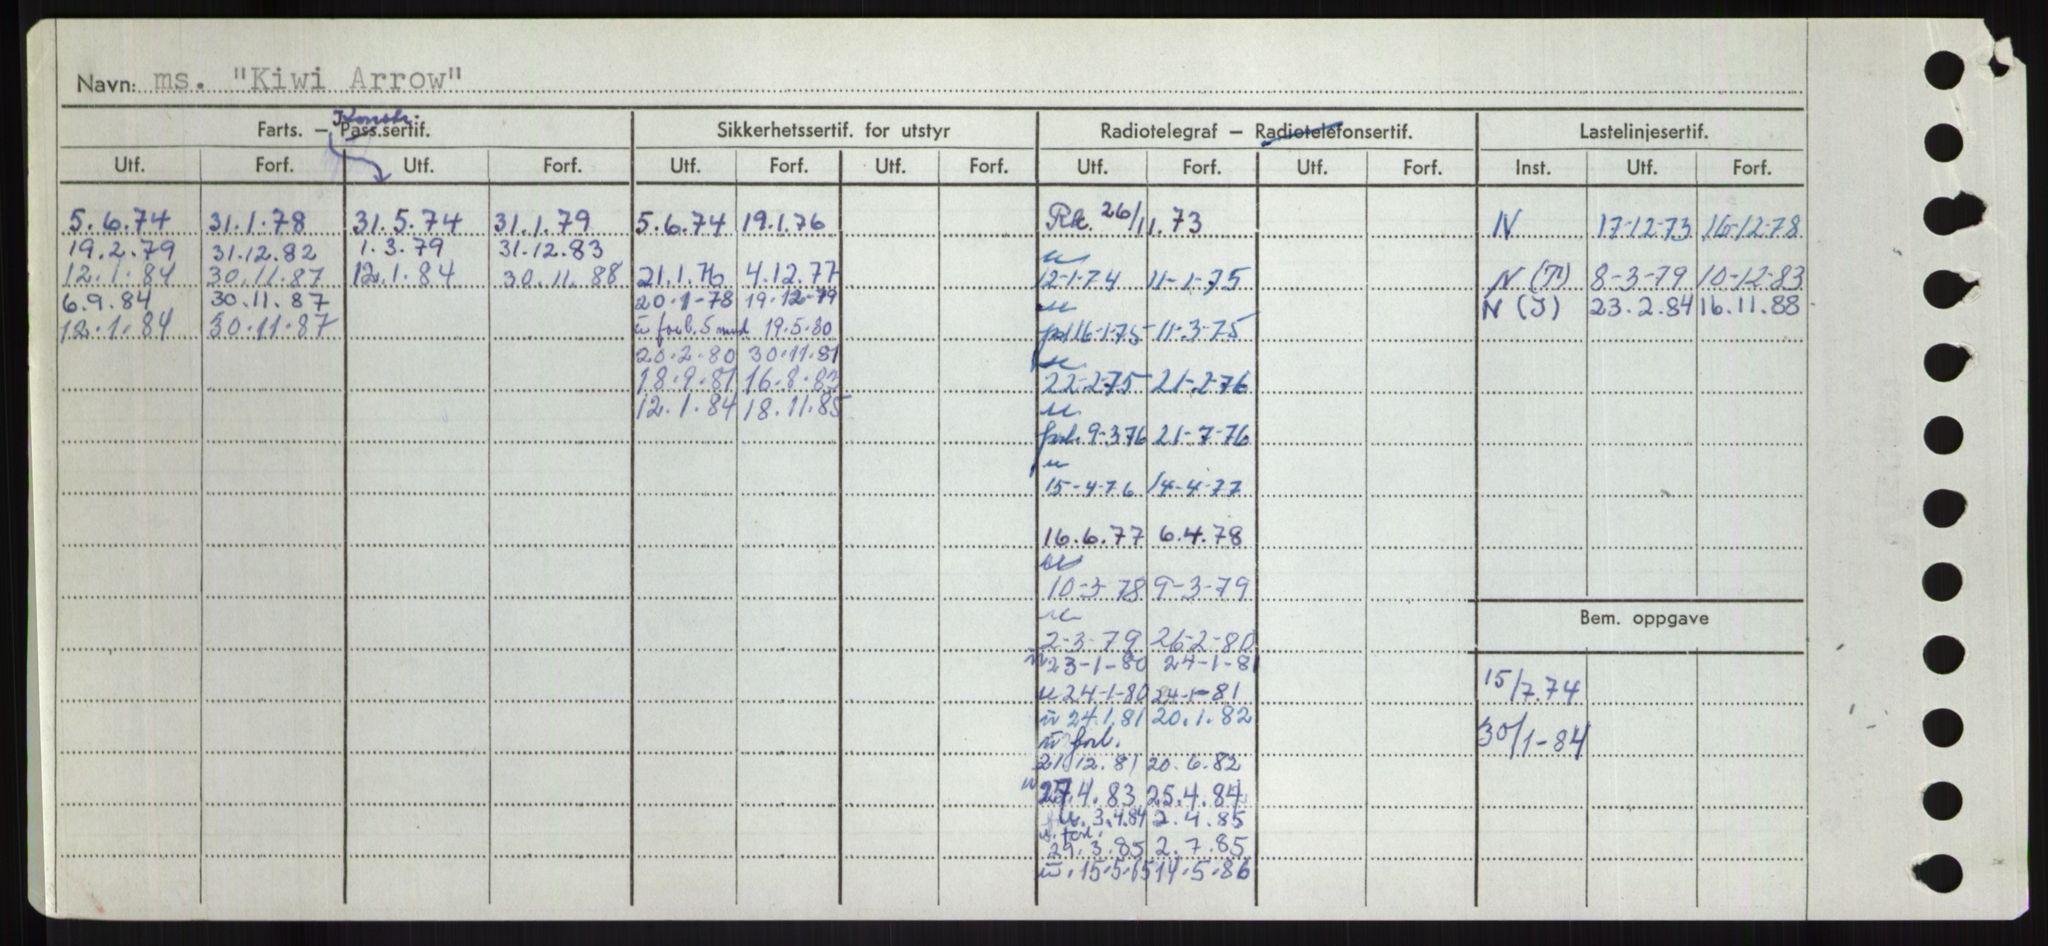 Navn: ms. "Kiwi Arrow"
Konstr.
Farts. — Pass.sertif. Sikkerhetssertif. for utstyr Radiotelegraf — Radiotelefonsertif. Lastelinjesertif.
Utf. Forf. Utf. Forf. Utf. Forf. Utf. Forf. Utf. Forf. Utf. Forf. Inst. Utf. Forf.
5.6.74 31.1.78 31.5.74 31.1.79 5.6.74 19.1.76 26/11.73 N 17-12-73 16-12-78
19.2.79 31.12.82 1.3.79 31.12.83
12.1.84 30.11.87 12.1.84 30.11.88 21.1.76 4.12.77 12-1-74 11-1-75 N 8-3-79 10-12-83
6.9.84 30.11.87 20.1-78 19.12-79 N (J) 23.2.84 16.11.88
12.1.84 30.11.87 forl. 5 mnd 19.5.80 16-1-75 11-3-75
20.2.80 30.11.81
18.9.81 16.8.83 22-2-75 21-2-76
12.1.84 18.11.85
forl. 9-3-76 21-7-76
15-4-76 14-4-77
16.6.77 6.4.78
10-3-78 9-3-79
Bem. oppgave
2-3-79 26-2-80
23-1-80 24-1-81
15/7.74
24-1-80 24-1-81
24.1.81 20.1.82
forl.
30/1-84
21.12.81 20.6.82
27.4.83 25.4.84
3.4.84 2.4.85
forl.
29.3.85 2.7.85
15.5.85 14.5.86